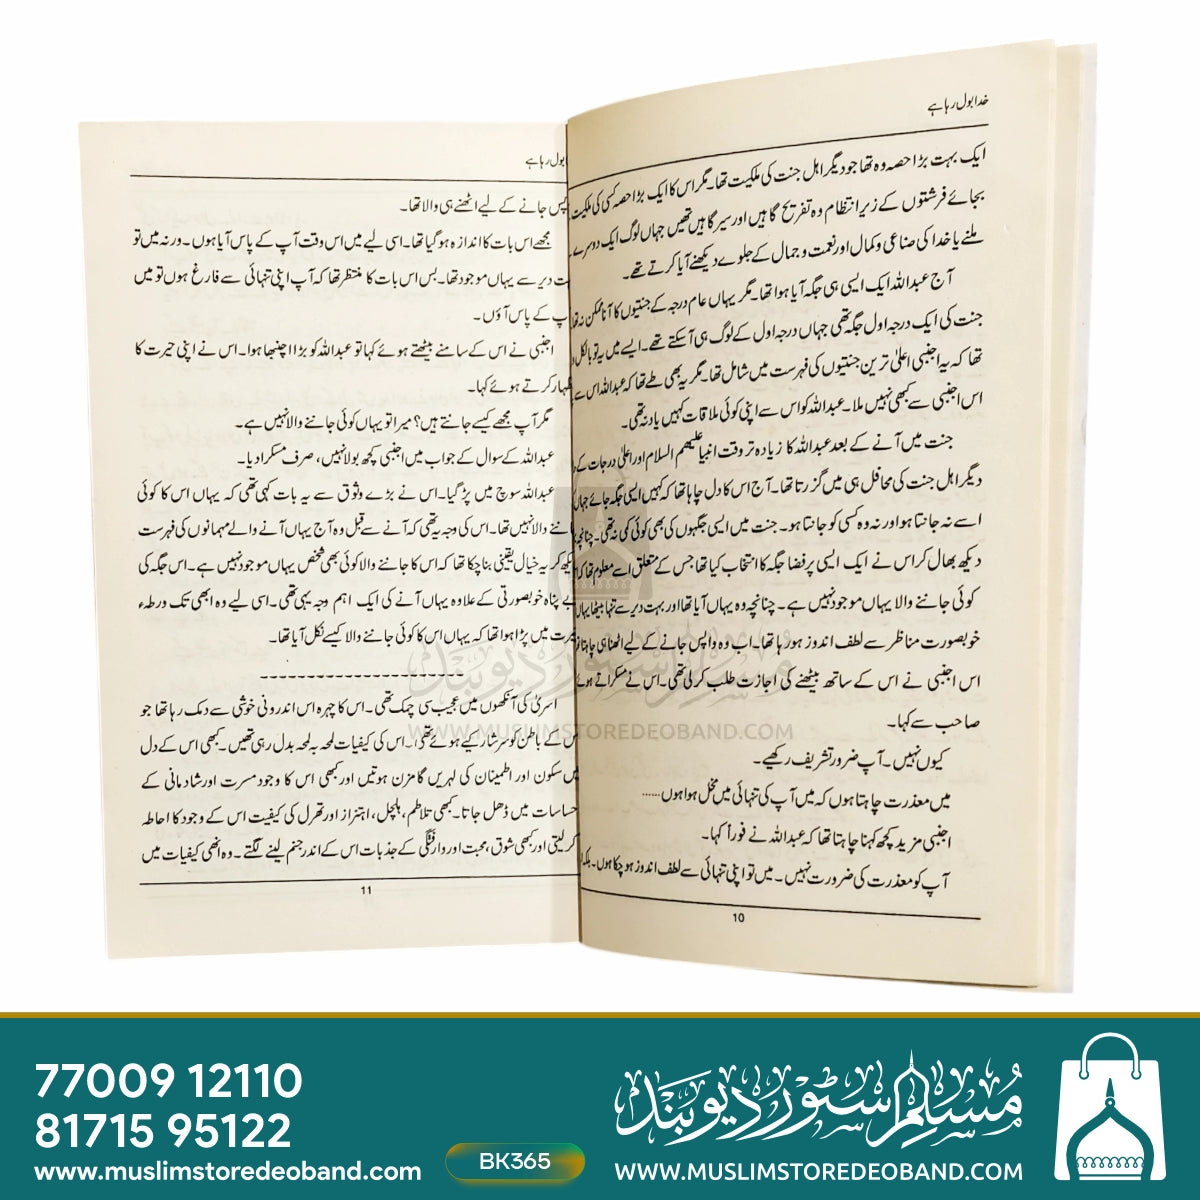 خدا بول رہا ہے
ایک بہت بڑا حصہ وہ تھا جو دیگر اہل جنت کی ملکیت تھا۔ مگر اس کا ایک بڑا حصہ کسی کی ملکیت
بجائے فرشتوں کے زیر انتظام وہ تفریح گاہیں اور سیر گاہیں تھیں جہاں لوگ ایک دوسرے
ملنے یا خدا کی صناعی و کمال اور نعمت و جمال کے جلوے دیکھنے آیا کرتے تھے۔
آج عبداللہ ایک ایسی ہی جگہ آیا ہوا تھا۔ مگر یہاں عام درجہ کے جنتیوں کا آنا ممکن نہ تھا
جنت کی ایک درجہ اول جگہ تھی جہاں درجہ اول کے لوگ ہی آسکتے تھے۔ ایسے میں یہ تو بالکل
تھا کہ یہ اجنبی اعلیٰ ترین جنتیوں کی فہرست میں شامل تھا۔ مگر یہ بھی طے تھا کہ عبداللہ اس سے
اس اجنبی سے کبھی نہیں ملا۔ عبداللہ کو اس سے اپنی کوئی ملاقات کہیں یاد نہ تھی۔
جنت میں آنے کے بعد عبداللہ کا زیادہ تر وقت انبیا علیہم السلام اور اعلیٰ درجات کے
دیگر اہل جنت کی محافل ہی میں گزرتا تھا۔ آج اس کا دل چاہا تھا کہ کہیں ایسی جگہ جائے جہاں
اسے نہ جانتا ہو اور نہ وہ کسی کو جانتا ہو۔ جنت میں ایسی جگہوں کی بھی کوئی کمی نہ تھی۔ چنانچہ
دیکھ بھال کر اس نے ایک ایسی پرفضا جگہ کا انتخاب کیا تھا جس کے متعلق اسے معلوم تھا کہ
کوئی جاننے والا یہاں موجود نہیں ہے۔ چنانچہ وہ یہاں آیا تھا اور بہت دیر سے تنہا بیٹھا یہاں
خوبصورت مناظر سے لطف اندوز ہو رہا تھا۔ اب وہ واپس جانے کے لیے اٹھنا ہی چاہتا
اس اجنبی نے اس کے ساتھ بیٹھنے کی اجازت طلب کر لی تھی۔ اس نے مسکراتے ہوئے
صاحب سے کہا۔
کیوں نہیں۔ آپ ضرور تشریف رکھیے۔
میں معذرت چاہتا ہوں کہ میں آپ کی تنہائی میں مخل ہوا ہوں......
اجنبی مزید کچھ کہنا چاہتا تھا کہ عبداللہ نے فوراً کہا۔
آپ کو معذرت کی ضرورت نہیں۔ میں تو اپنی تنہائی سے لطف اندوز ہو چکا ہوں۔ بلکہ
10
بول رہا ہے
پس جانے کے لیے اٹھنے ہی والا تھا۔
مجھے اس بات کا اندازہ ہو گیا تھا۔ اسی لیے میں اس وقت آپ کے پاس آیا ہوں۔ ورنہ میں تو
بہت دیر سے یہاں موجود تھا۔ بس اس بات کا منتظر تھا کہ آپ اپنی تنہائی سے فارغ ہوں تو میں
آپ کے پاس آؤں۔
اجنبی نے اس کے سامنے بیٹھتے ہوئے کہا تو عبداللہ کو بڑا اچنبھا ہوا۔ اس نے اپنی حیرت کا
اظہار کرتے ہوئے کہا۔
مگر آپ مجھے کیسے جانتے ہیں؟ میرا تو یہاں کوئی جاننے والا نہیں ہے۔
عبداللہ کے سوال کے جواب میں اجنبی کچھ بولا نہیں، صرف مسکرا دیا۔
عبداللہ سوچ میں پڑ گیا۔ اس نے بڑے وثوق سے یہ بات کہی تھی کہ یہاں اس کا کوئی
جاننے والا نہیں تھا۔ اس کی وجہ یہ تھی کہ آنے سے قبل وہ آج یہاں آنے والے مہمانوں کی فہرست
دیکھ کر یہ خیال یقینی بنا چکا تھا کہ اس کا جاننے والا کوئی بھی شخص یہاں موجود نہیں ہے۔ اس جگہ کی
بے پناہ خوبصورتی کے علاوہ یہاں آنے کی ایک اہم وجہ یہی تھی۔ اسی لیے وہ ابھی تک ورطہء
حیرت میں پڑا ہوا تھا کہ یہاں اس کا کوئی جاننے والا کیسے نکل آیا تھا۔
----------------------
اسریٰ کی آنکھوں میں عجیب سی چمک تھی۔ اس کا چہرہ اس اندرونی خوشی سے دمک رہا تھا جو
اس کے باطن کو سرشار کیے ہوئے تھی۔ اس کی کیفیات لمحہ بہ لمحہ بدل رہی تھیں۔ کبھی اس کے دل
میں سکون اور اطمینان کی لہریں گامزن ہوتیں اور کبھی اس کا وجود مسرت اور شادمانی کے
احساسات میں ڈھل جاتا۔ کبھی تلاطم، ہلچل، اہتزاز اور تھرل کی کیفیت اس کے وجود کا احاطہ
کر لیتی اور کبھی شوق، محبت اور وارفتگی کے جذبات اس کے اندر جنم لینے لگتے۔ وہ انھی کیفیات میں
11
مسلم سٹور دیوبند
WWW.MUSLIMSTOREDEOBAND.COM
77009 12110
81715 95122
www.muslimstoredeoband.com
BK365
مسلم سٹور دیوبند
WWW.MUSLIMSTOREDEOBAND.COM